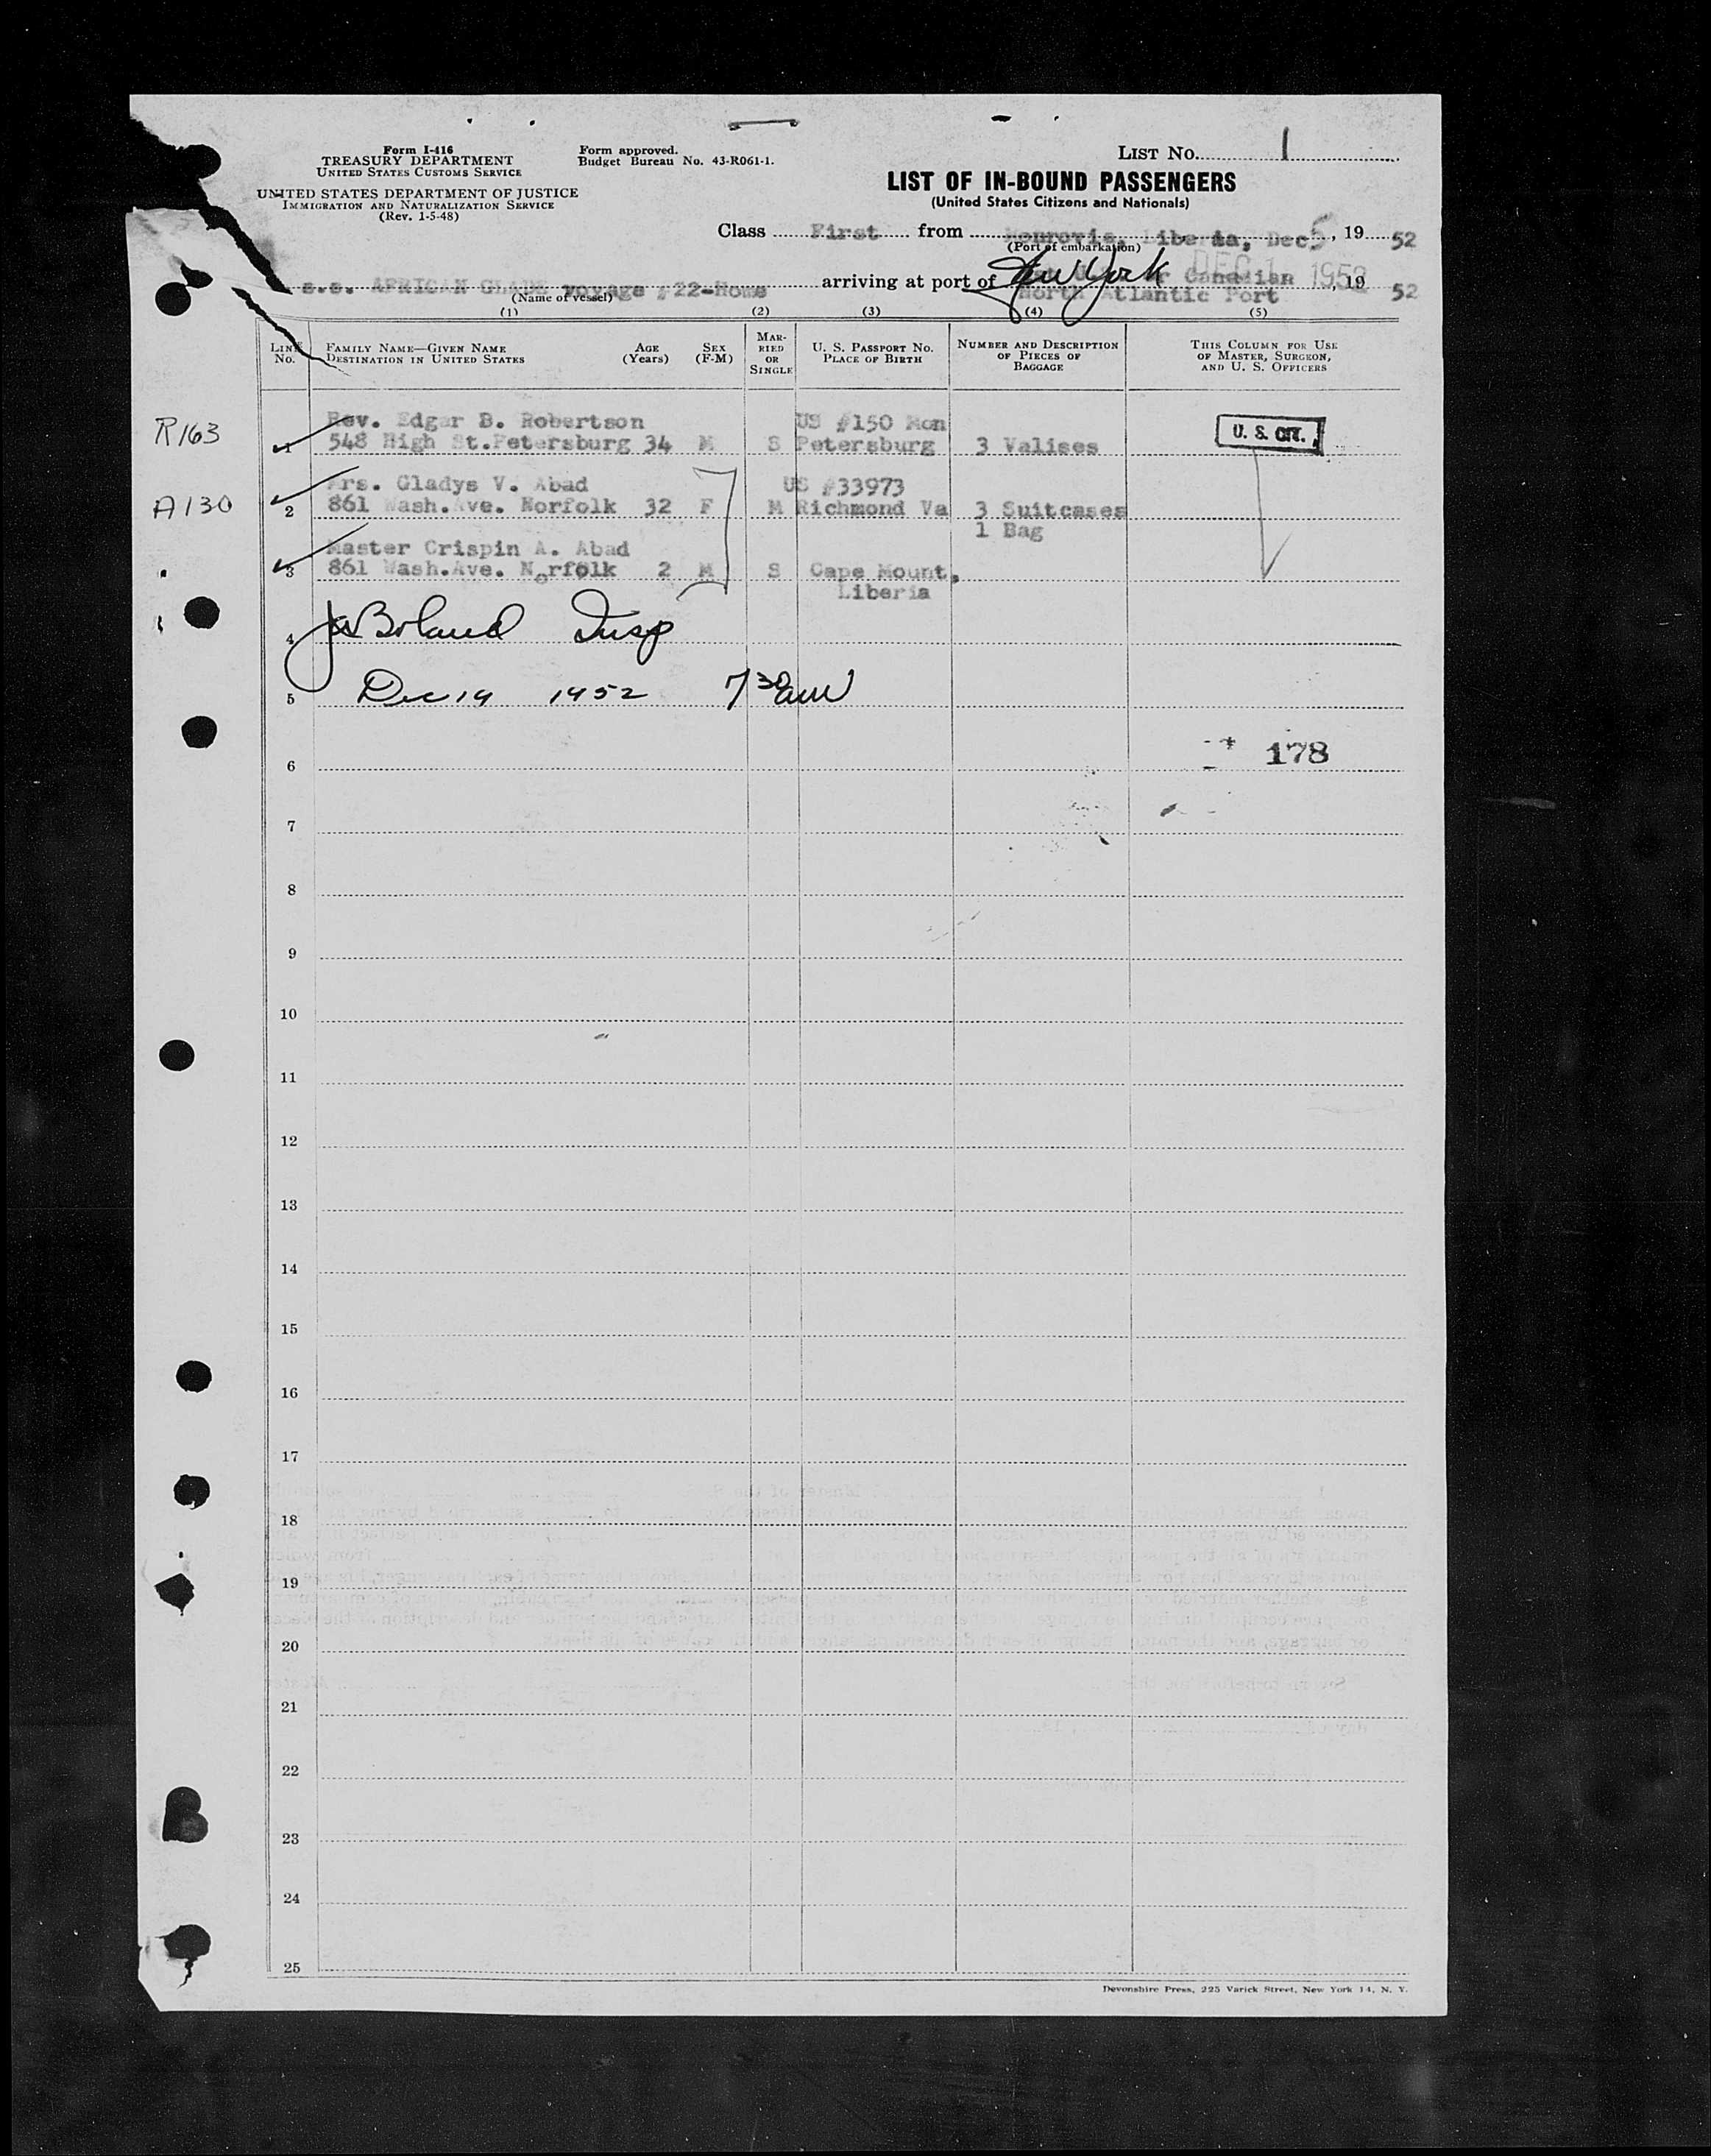 LIST NO. 1
Form I-416
TREASURY DEPARTMENT
UNITED STATES CUSTOMS SERVICE
Form approved.
Budget Bureau No. 43-R061-1.
UNITED STATES DEPARTMENT OF JUSTICE
IMMIGRATION AND NATURALIZATION SERVICE
(Rev. 1-5-48)
LIST OF IN-BOUND PASSENGERS
(United States Citizens and Nationals)
Class First from Monrovia, Liberia, Dec 5, 19 52
(Port of embarkation)
s.s. AFRICAN GLADE voyage #22-Home arriving at port of New York Canadian 1952, 19 52
North Atlantic Port
(Name of vessel)
(1) (2) (3) (4) (5)
LINE No.
FAMILY NAME—GIVEN NAME
DESTINATION IN UNITED STATES
AGE (Years)
SEX (F-M)
MARRIED OR SINGLE
U. S. PASSPORT NO.
PLACE OF BIRTH
NUMBER AND DESCRIPTION OF PIECES OF BAGGAGE
THIS COLUMN FOR USE OF MASTER, SURGEON, AND U. S. OFFICERS
Rev. Edgar B. Robertson US #150 Mon
R163 1 548 High St. Petersburg 34 M S Petersburg 3 Valises U. S. CIT.
Mrs. Gladys V. Abad US #33973
A130 2 861 Wash.Ave. Norfolk 32 F M Richmond Va 3 Suitcases
1 Bag
Master Crispin A. Abad
3 861 Wash.Ave. Norfolk 2 M S Cape Mount,
Liberia
4 Boland Insp
5 Dec 19 1952 7 30 am
178
6
7
8
9
10
11
12
13
14
15
16
17
18
19
20
21
22
23
24
25
Devonshire Press, 225 Varick Street, New York 14, N. Y.